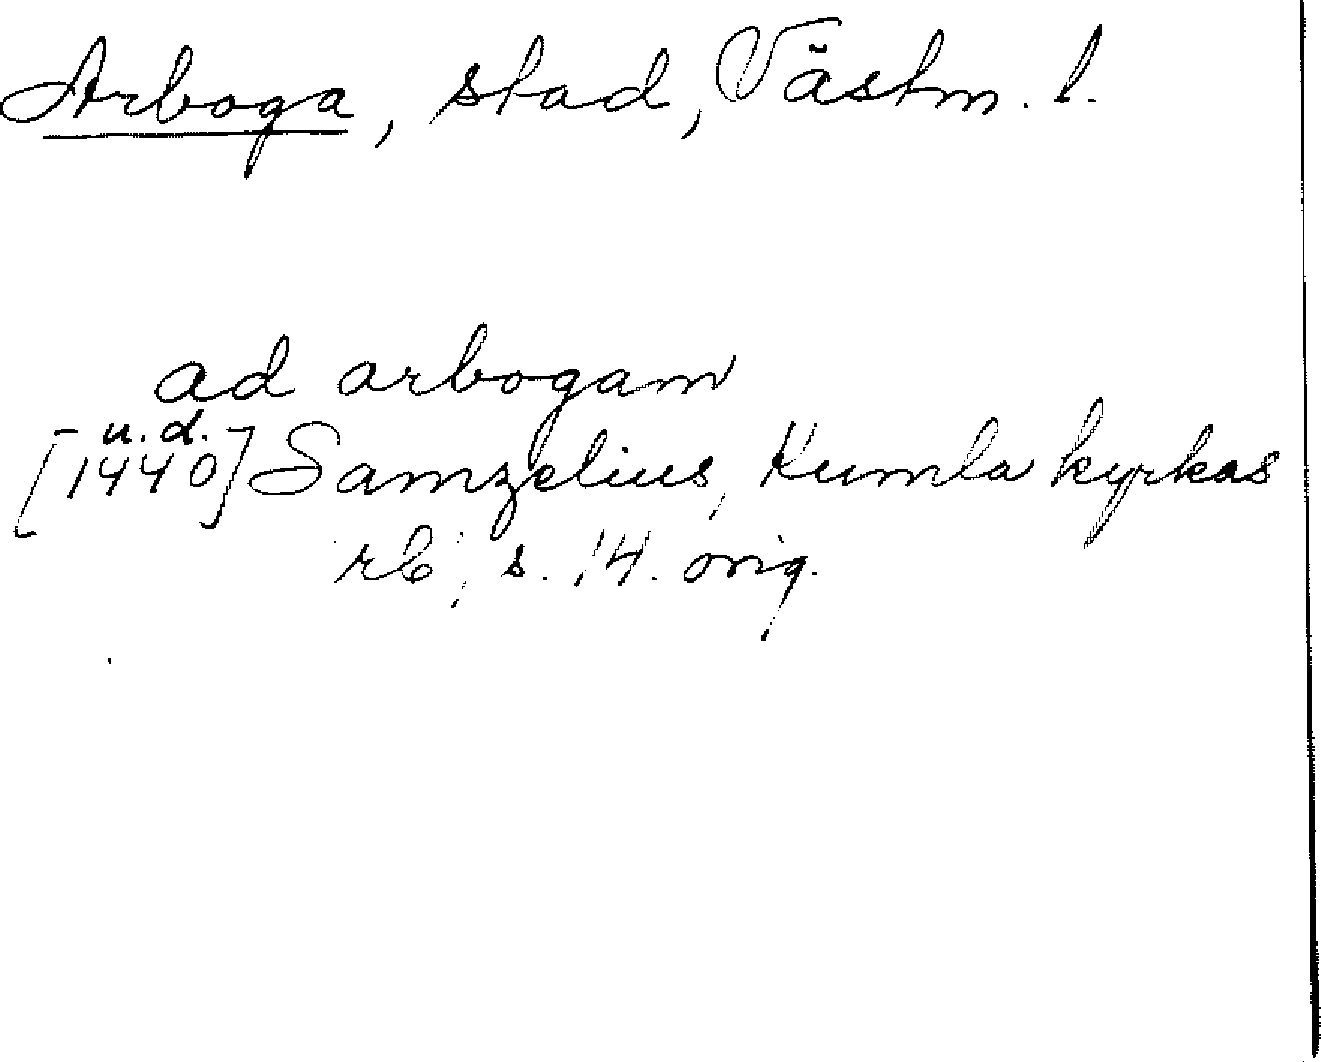 Arboga, stad, Västm. l.
ad arbogam
u. d.
[1440] Samzelius, Kumla kyrkas
rb, s. 14. orig.